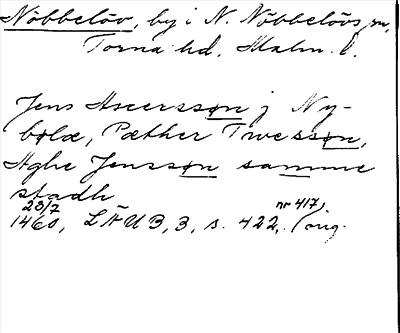 Nöbbelöv, by i N. Nöbbelövs sn,
Torna hd. Malm. l.
Jens Ascerssøn j Ny-
bølæ, Pæther Twessøn,
Aghe Jenssøn samme
stadh
28/7 1460, LÄUB, 3, s. 422, (nr 417) orig.